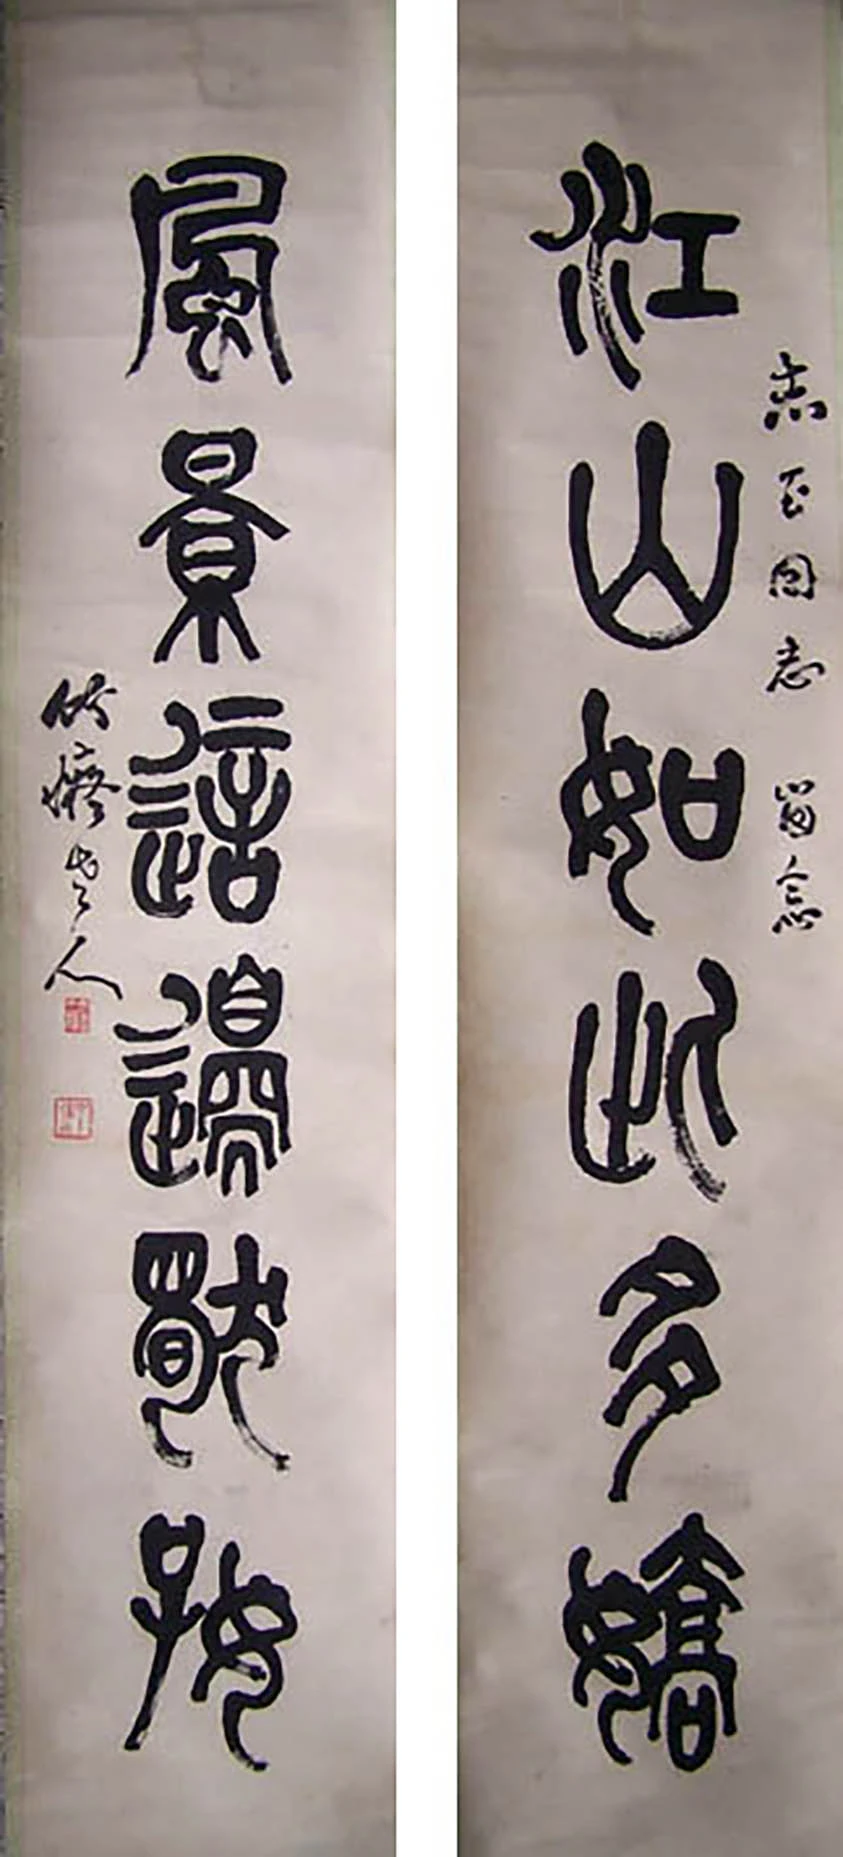 同志 留念
江山如此多嬌
風景這邊獨好
老人